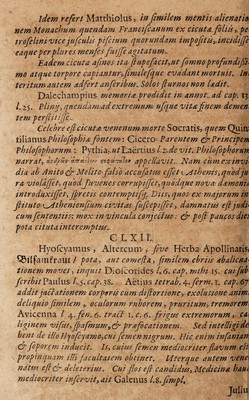 Idem refert Matthiolus, in similem mentis alienatio-
nem Monachum quendam Franciscanum ex cicuta foliis, pe-
troselini vice jusculis piscium quorundam impositis, incidisse
eaque per plures menses fuisse agitatum.
Eadem cicuta asinos ita stupefacit, ut somno profundissi-
mo atque torpore capiantur, similesque evadant mortuis. In-
teritum autem adfert anseribus. Solo sturnos non lædit.
Dalechampius memoria prodidit in annot. ad cap. 13
l. 25. Plinij, quendam ad extremum usque vitæ finem demen-
tem perstitisse.
Celebre est cicuta venenum morte Socratis, quem Quin-
tilianus Philosophiæ fontem: Cicero Parentem & Principem
Philosophorum: Pythia, ut Laërtius l. 2. de vit. Philosoph.
narrat, appellavit. Nam cum ex invi-
dia ab Anito & Melito falsò accusatus esset Athenis, quod ju-
ra violâsset, quod Juvenes corrupisset, quodque nova dæmonia
introduxisset, spretis contemptisque Diis, quos ex majorum in-
stituto Atheniensium civitas suscipisset, damnatus est judi-
cum sententiis: mox in vincula conjectus: & post paucos dies
pota cicuta interemptus.
CLXII.
Hyoscyamus, Altercum, sive Herba Apollinaris,
Bilsamkraut / pota, aut comesta, similem ebriis abaliena-
tionem movet, inquit Dioscorides l. 6. cap. mihi 15. cui sub-
scribit Paulus l. 5. cap. 38. Aëtius tetrab. 4. serm. 1. cap. 67
addit jactationem corporis cum distortione, exolutione animi
deliquio similem, oculorum rubore, pruritu, tremore.
Avicenna l. 4. fen. 6. tract. 1. c. 6. frigus extremorum, ca-
liginem visus, spasmum, & præfocationem. Sed intelligi de-
bent de illo Hyoscyamo, cui semen nigrum. Hic enim insaniam
& soporem inducit. Is, cuius semen mediocriter flavum est,
propinquam illi facultatem obtinet. Uterque autem vene-
natus est & deleterius. Cui flos est candidus, Medicinæ haud
mediocriter inservit, ait Galenus l. 8. simpl.
Julius